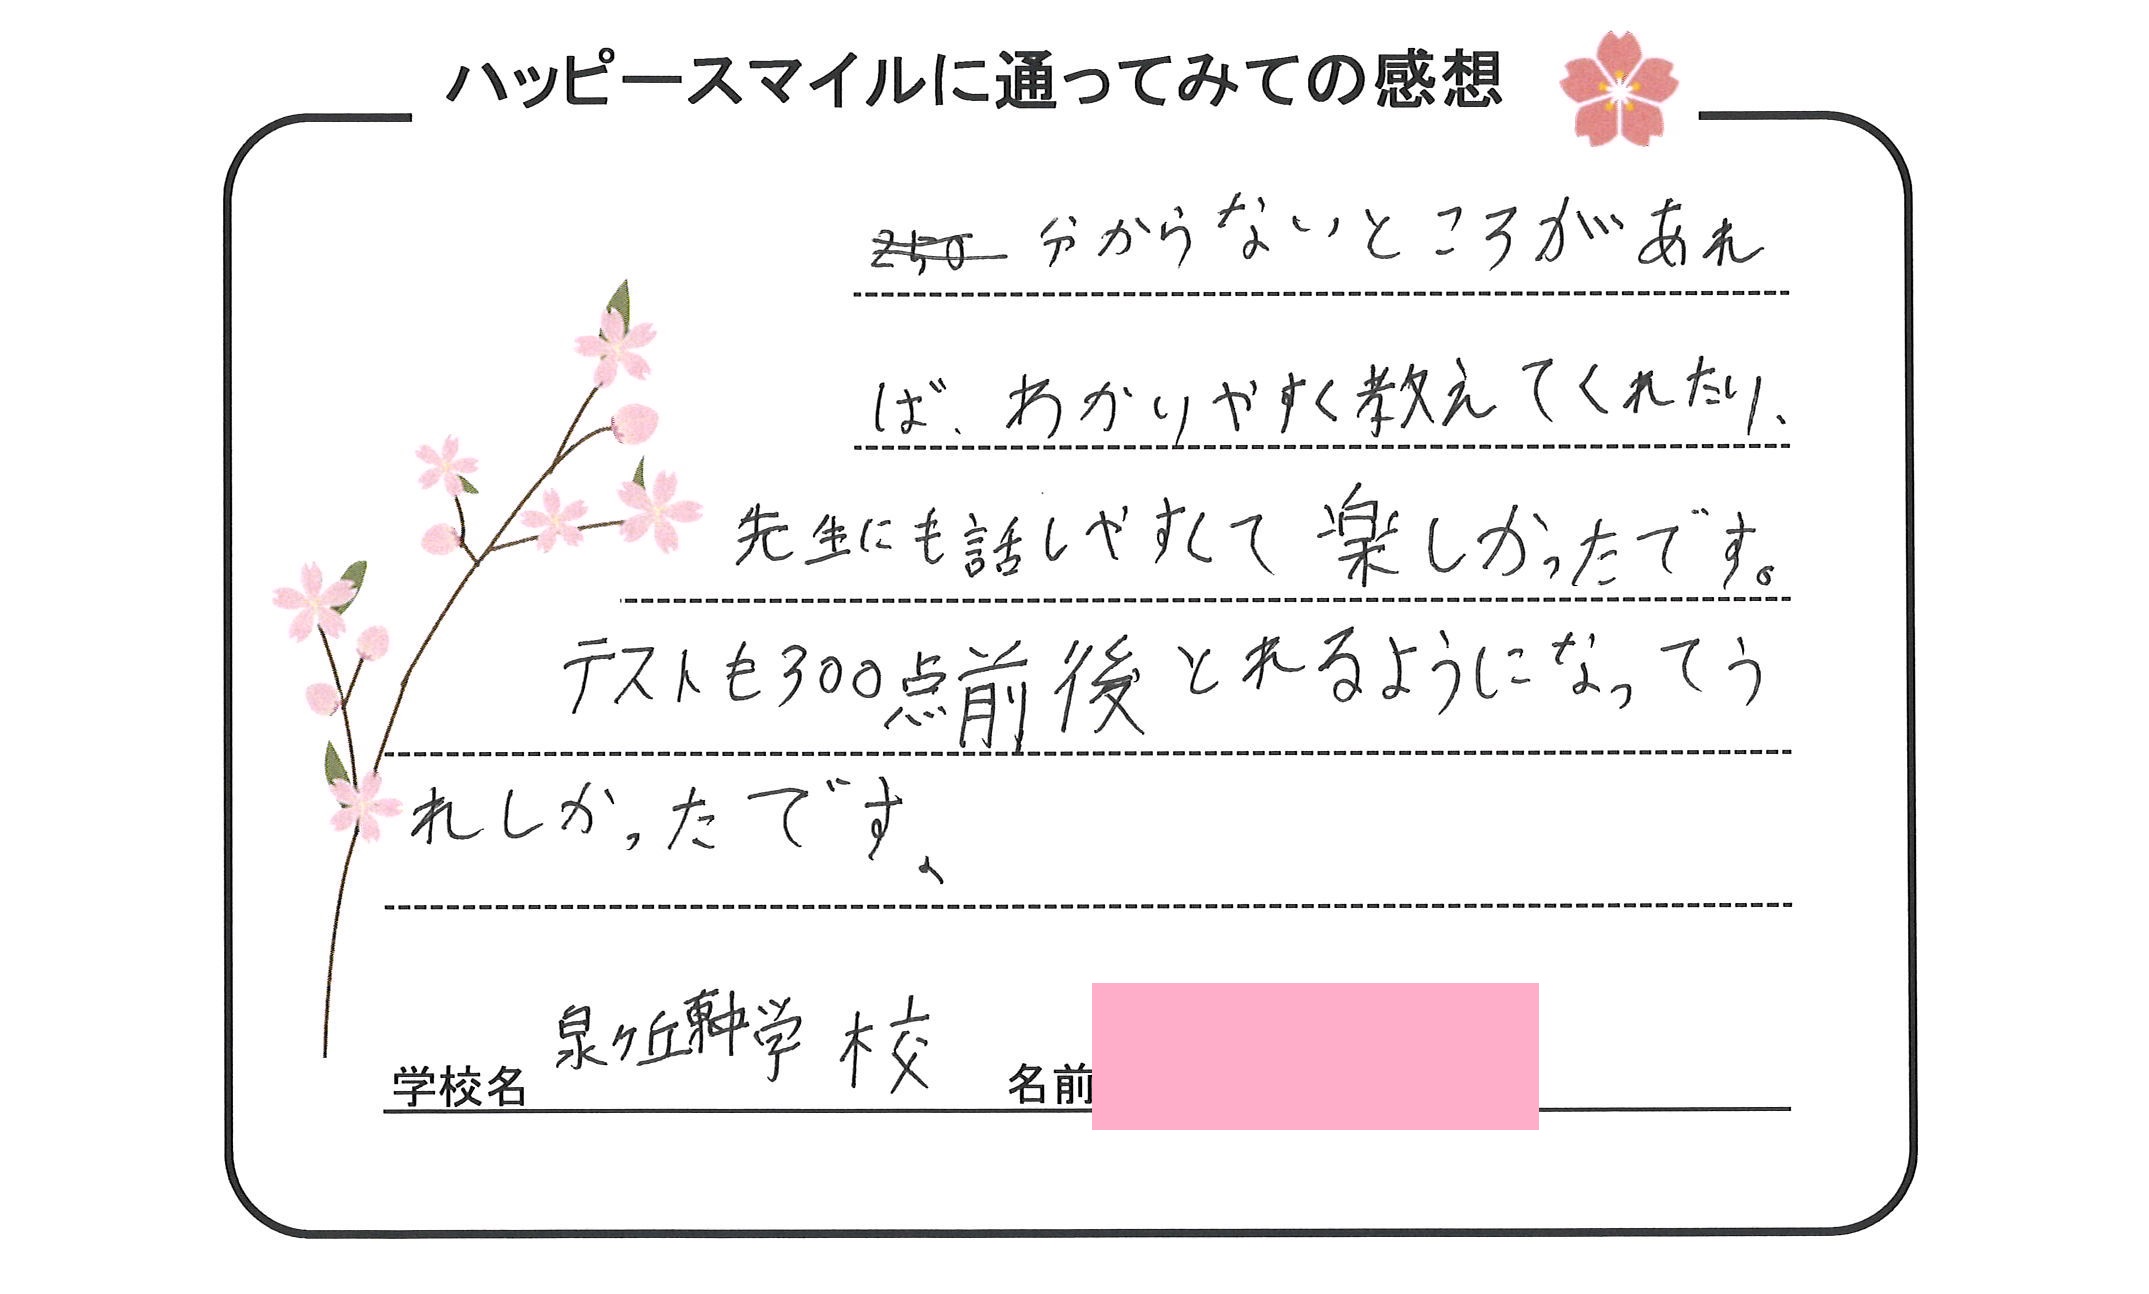 ハッピースマイルに通ってみての感想
250 分からないところがあれ
ば、わかりやすく教えてくれたり、
先生にも話しやすくて楽しかったです。
テストも300点前後とれるようになってう
れしかったです、
学校名 泉ヶ丘東中学校 名前